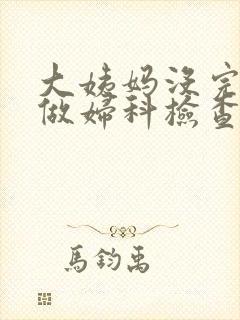 大姨妈没完
做婦科檢查
馬鈞禹